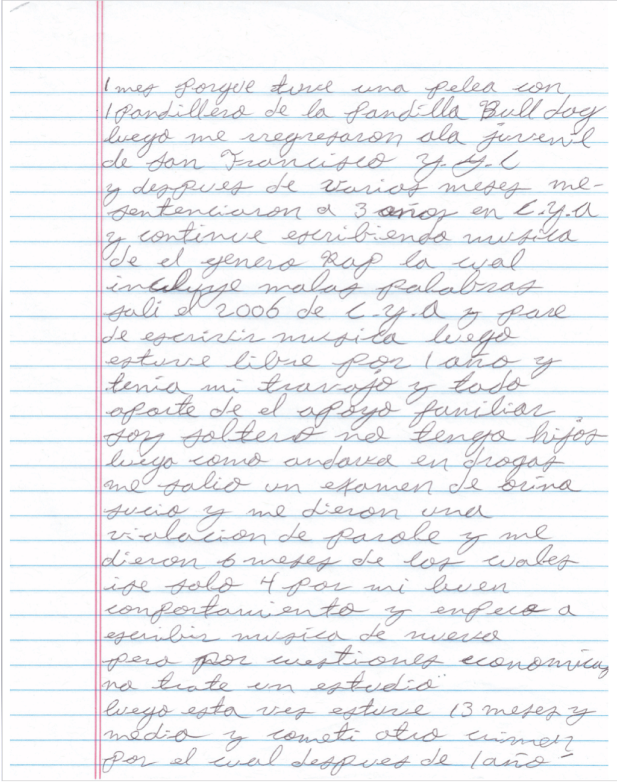 1 mes porque tuve una pelea con
1 pandillero de la pandilla Bulldog
luego me regresaron ala juvenil
de San Francisco Y.G.C
y despues de varios meses me-
sentenciaron a 3 años en C.Y.A
y continue escribiendo musica
de el genero Rap la cual
incluye malas palabras
sali el 2006 de C.Y.A y pare
de escrivir musica luego
estuve libre por 1 año y
tenia mi travajo y todo
aparte de el apoyo familiar
soy soltero no tengo hijos
luego como andava en drogas
me salio un examen de orina
sucio y me dieron una
violacion de parole y me
dieron 6 meses de los cuales
ise solo 4 por mi buen
comportamiento y enpeco a
escribir musica de nuevo
pero por cuestiones economicas
no trate un estudio
luego esta ves estuve 13 meses y
medio y cometi otro crimen
por el cual despues de 1 año-